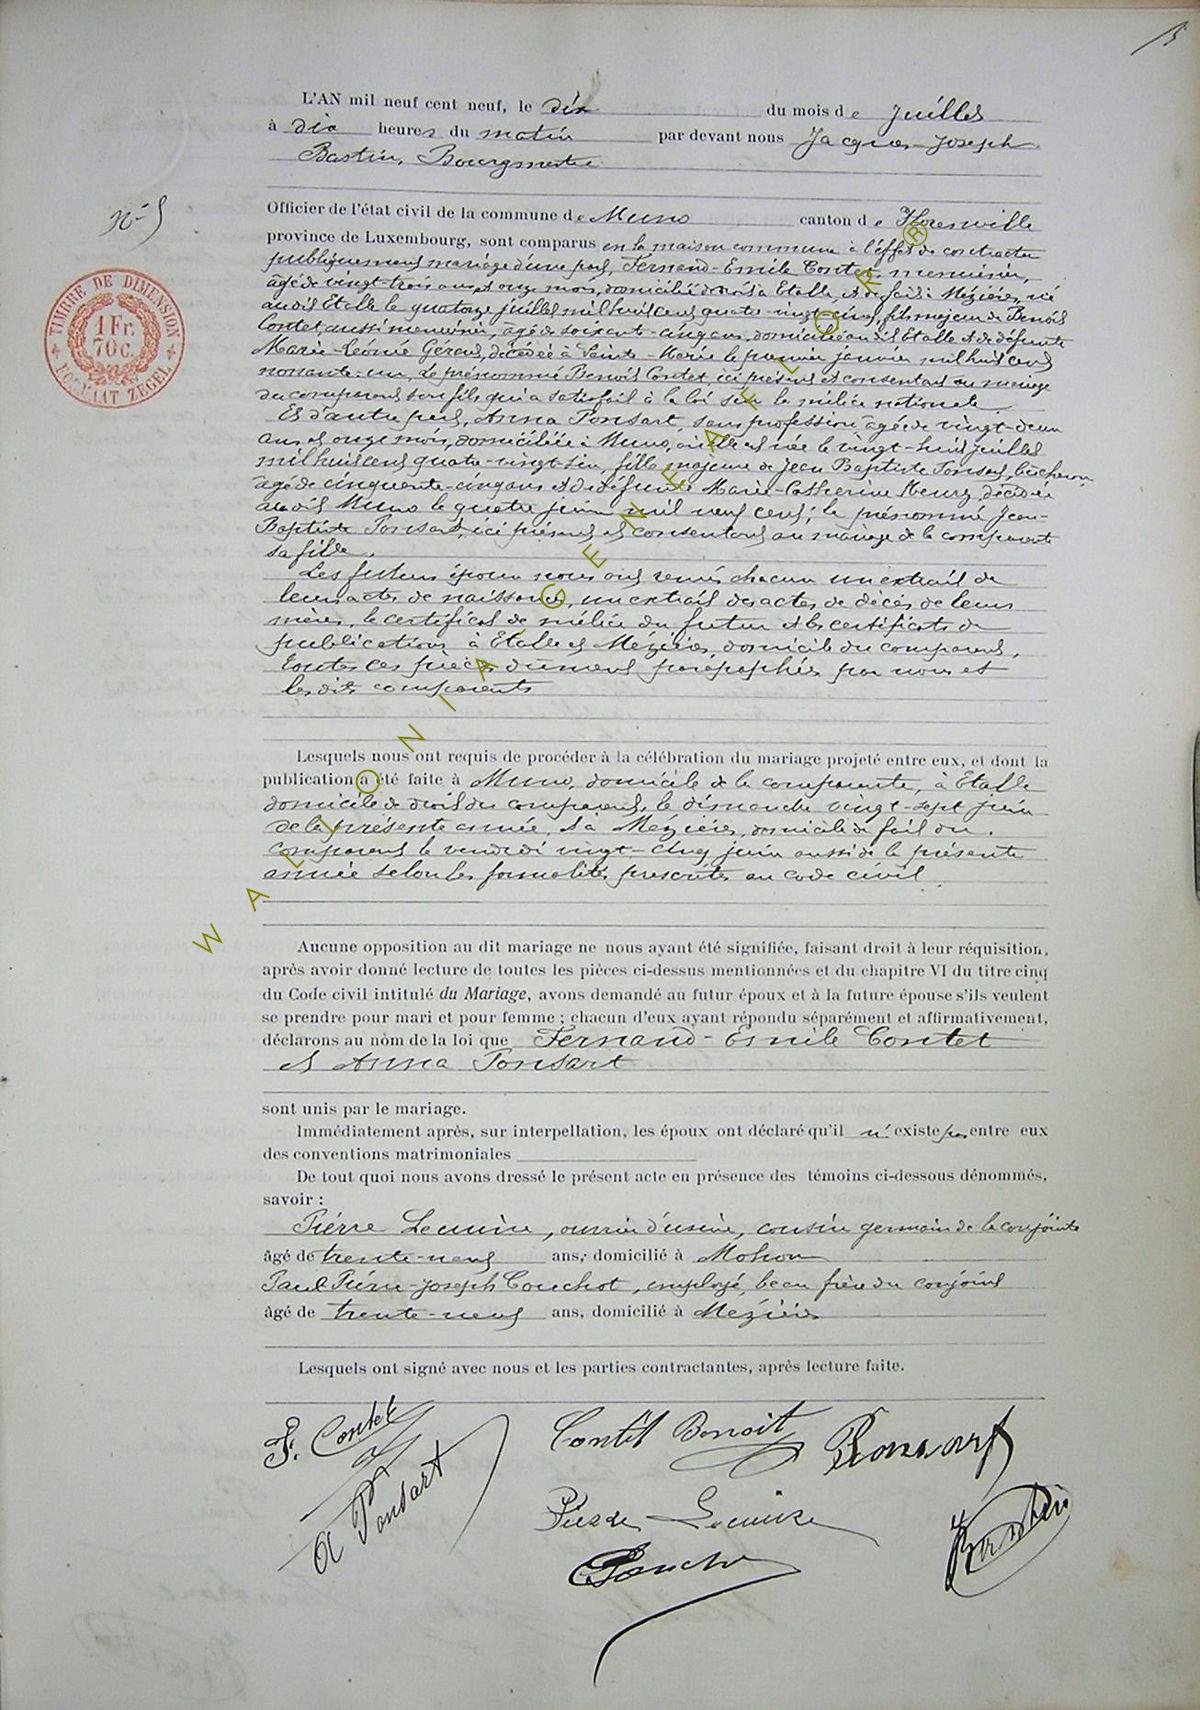 L'AN mil neuf cent neuf, le dix du mois de Juillet
à dix heures du matin par devant nous Jacques-Joseph
Bastin, Bourgmestre
N° 5
Officier de l'état civil de la commune de Muno canton de Florenville
province de Luxembourg, sont comparus en la maison commune à l'effet de contracter
publiquement mariage d'une part, Fernand-Emile Contet, menuisier,
âgé de vingt-trois ans et onze mois, domicilié de droit à Etalle, et de fait à Mézières, né
au dit Etalle le quatorze juillet mil huit cent quatre-vingt cinq, fils majeur de Benoît
Contet aussi menuisier, âgé de soixante-cinq ans, domicilié au dit Etalle et de défunte
Marie-Léonie Gérard, décédée à Sainte-Marie le premier janvier mil huit cent
nonante-un, le prénommé Benoît Contet, ici présent et consentant au mariage
du comparant son fils qui a satisfait à la loi sur la milice nationale.
Et d'autre part, Anna Ponsart, sans profession âgée de vingt-deux
ans et onze mois, domiciliée à Muno, où elle est née le vingt-huit juillet
mil huit cent quatre-vingt-six, fille majeure de Jean Baptiste Ponsart, bûcheron
âgé de cinquante-cinq ans et de défunte Marie-Catherine décédée
au dit Muno le quatre juin mil neuf cent; le prénommé Jean-
Baptiste Ponsart, ici présent et consentant au mariage de la comparante
sa fille.
Les futurs époux nous ont remis chacun un extrait de
leurs actes de naissance, un extrait des actes de décès de leurs
mères, le certificat de milice du futur et les certificats de
publications à Etalle et Mézières, domicile du comparant,
toutes ces pièces dûment paraphées par nous et
les dits comparants
Lesquels nous ont requis de procéder à la célébration du mariage projeté entre eux, et dont la
publication a été faite à Muno, domicile de la comparante, à Etalle
domicile de droit du comparant, le dimanche vingt-sept juin
de la présente année, et à Mézières, domicile de fait du
comparant le vendredi vingt-cinq juin aussi de la présente
année selon les formalités prescrites au code civil
Aucune opposition au dit mariage ne nous ayant été signifiée, faisant droit à leur réquisition,
après avoir donné lecture de toutes les pièces ci-dessus mentionnées et du chapitre VI du titre cinq
du Code civil intitulé du Mariage, avons demandé au futur époux et à la future épouse s'ils veulent
se prendre pour mari et pour femme ; chacun d'eux ayant répondu séparément et affirmativement,
déclarons au nom de la loi que Fernand-Emile Contet
et Anna Ponsart
sont unis par le mariage.
Immédiatement après, sur interpellation, les époux ont déclaré qu'il n'existe pas entre eux
des conventions matrimoniales
De tout quoi nous avons dressé le présent acte en présence des témoins ci-dessous dénommés,
savoir :
Pierre Lemire, ouvrier d'usine, cousin germain de la conjointe
âgé de trente-neuf ans, domicilié à Mohon
Paul Pierre-Joseph Couchot, employé, beau frère du conjoint
âgé de trente-neuf ans, domicilié à Mézières
Lesquels ont signé avec nous et les parties contractantes, après lecture faite.
F. Contet
Contet Benoit
Ponsart
A Ponsart
Pierre Lemire
Bastin
TIMBRE DE DIMENSION
1 Fr.
70 c.
FORMAAT ZEGEL
WALLONIA-GENEAFELOR®